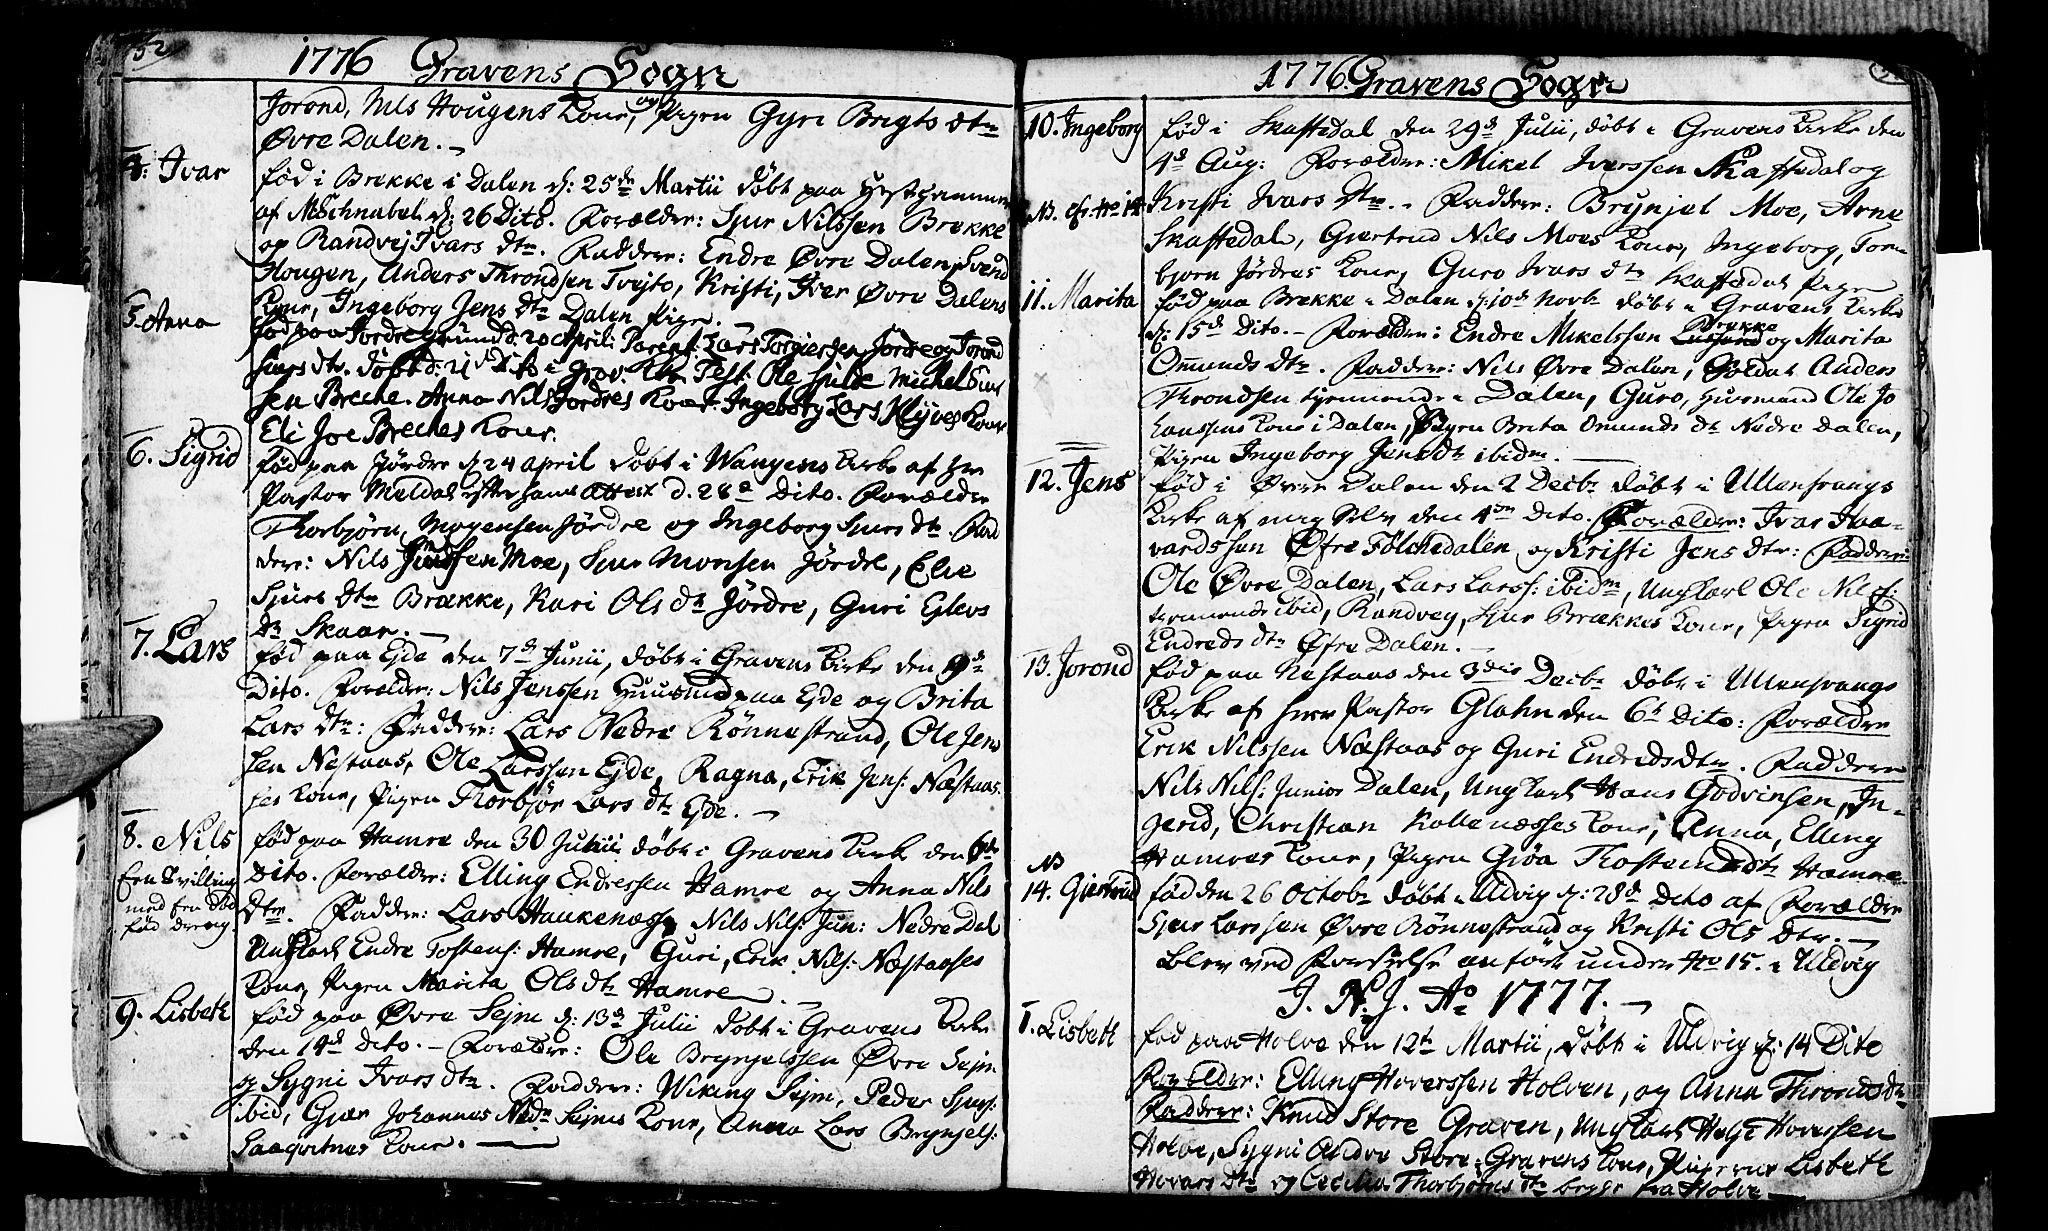 52
1776 Gravens Sogn
Jorond, Nils Hougens Kone, og Pigen Gyri Brigts dtr
Øvre Dalen. –
4. Ivar
fød i Brekke i Dalen d: 25de Martii døbt paa
af Mr Schnabel d: 26 Dito. Forældre: Sjur Nilssen Brekke
og Randvej Ivars dtr. Faddere: Endre Øvre Dalen, Svend
Hougen, Anders Throndsen Tvejto, Kristi, Iver Øvre Dalens
Kone, Ingeborg Jens dtr Dalen Pige.
5. Anna
fød paa Jordre Grund d: 20 April: Parent: Lars Torgiersen Jordre og Jorond
Siurs dtr. Døbt d: 21 Dito i Grav. Kir. Test: Ole Michel Siur
sen Breche. Anna Nils Jordres Kone. Ingeborg Lars Klyves Kone
Eli Joe Breches Kone.
6. Sigrid
fød paa Jørdre d 24 april døbt i Wangens Kirke af Hr
Pastor Meldal efter hans Attest d. 28e Dito. Forældre
Thorbjörn Mogensen Jördre og Ingeborg Siurs dtr. Fad
dere: Nils Moe, Sjur Monsen Jördre, Elie
Sjurs dtr Brække, Kari Ols dtr Jördre, Guri Ejlevs
dtr Skaar. –
7. Lars
fød paa Ejde den 7de Junii, døbt i Gravens Kirke den 9de
Dito. Forældre: Nils Jenssen Huusmd paa Ejde og Brita
Lars dtr: Faddere: Lars Nedre Rönnestrand, Ole Jens
sen Nestaas, Ole Larssen Ejde, Ragna, Erik Jens: Næstaas
ses Kone, Pigen Thorbjör Lars dtr Ejde. –
8. Nils
Een Tvilling
med Een død
fød dreng.
fød paa Hamre den 30 Julii døbt i Gravens Kirke den 6te
Dito. Forældre: Elling Endressen Hamre og Anna Nils
dtr. Faddere: Lars Haukenæss, Nils Nils: Jun: Nedre Dal
Ungkarl Endre Tostens: Hamre, Guri, Erik Nils: Næstaases
Kone, Pigen Marita Ols dtr Hamre. –
9. Lisbeth
fød paa Øvre Sejm d: 13de Julii døbt i Gravens Kirke
den 14de Dito. – Forældre: Ole Brynjelssen Øvre Sejm
og Sygni Ivars dtr. Faddere: Wiking Sejm, Peder Sjurs:
ibid, Gjør Johannes Nedr Sejms Kone, Anna Lars Brynjels:
Saaqvitnes Kone. –
1776 Gravens Sogn
10. Ingeborg
fød i Skaftedal den 29de Julii, døbt i Gravens Kirke den
4de Aug: Forældre: Mikel Iverssen Skaftedal og
NB. cfr. No 14
Kristi Ivars dtr. – Faddere: Brynjel Moe, Arne
Skaftedal, Giertrud Nils Moes Kone, Ingeborg, Tor-
bjorn Jördres Kone, Guro Ivars dtr Skaftedal Pige
11. Marita
fød paa Brekke i Dalen d: 10de Novbr døbt i Gravens Kirke
d: 15de Dito. – Forældre: Endre Mikelssen Brekke og Marita
Omunds dtr. Faddere: Nils Øvre Dalen, Soldat Anders
Throndsen tjennende i Dalen, Guro, Huusmand Ole Jo
hanssens Kone i Dalen, Pigen Brita Omunds dtr Nedre Dalen,
Pigen Ingeborg Jens dtr ibidm. –
12. Jens
fød i Øvre Dalen den 2 Decbr døbt i Ullensvangs
Kirke af mig selv den 4de Dito. Forældre: Ivar Haa-
vardssen Øfre Folchedalen og Kristi Jens dtr: Faddere:
Ole Øvre Dalen, Lars Larss: ibidm, Ungkarl Ole Nilss:
tjennende ibid, Randveg, Sjur Brækkes Kone, Pigen Sigrid
Endreds dtr Øfre Dalen. –
13. Jorond
fød paa Nestaas den 3die Decbr døbt i Ullensvangs
Kirke af Herr Pastor Glahn den 6te Dito: Forældre
Erik Nilssen Næstaas og Guri Endreds dtr. Faddere
Nils Nils: Junior Dalen, Ungkarl Hans Godvinsen, In-
gerid, Christian Kollenæsses Kone, Anna, Elling
Hamres Kone, Pigen Gjøa Thostens dtr Hamre.
NB
14. Giertrud
fød den 26 Octobr døbt i Uldvig d: 28de Dito af Forældre
Sjur Larssen Øvre Rönnestrand og Kristi Ols dtr. –
blev ved Forseelse anført under No 15. i Uldvig
J. N. J. Ao 1777. –
1. Lisbeth
fød paa Holve den 12te Martii, døbt i Uldvig d: 14 Dito
Forældre: Elling Hoverssen Holven, og Anna Thronds dtr
Faddere: Knud Store Graven, Ungkarl Helje Hoverssen
Holve, Sygni Andve Store Gravens Kone, Pigerne Lisbeth
Hovars dtr og Cecilia Thorbjörns dtr begge fra Holve –